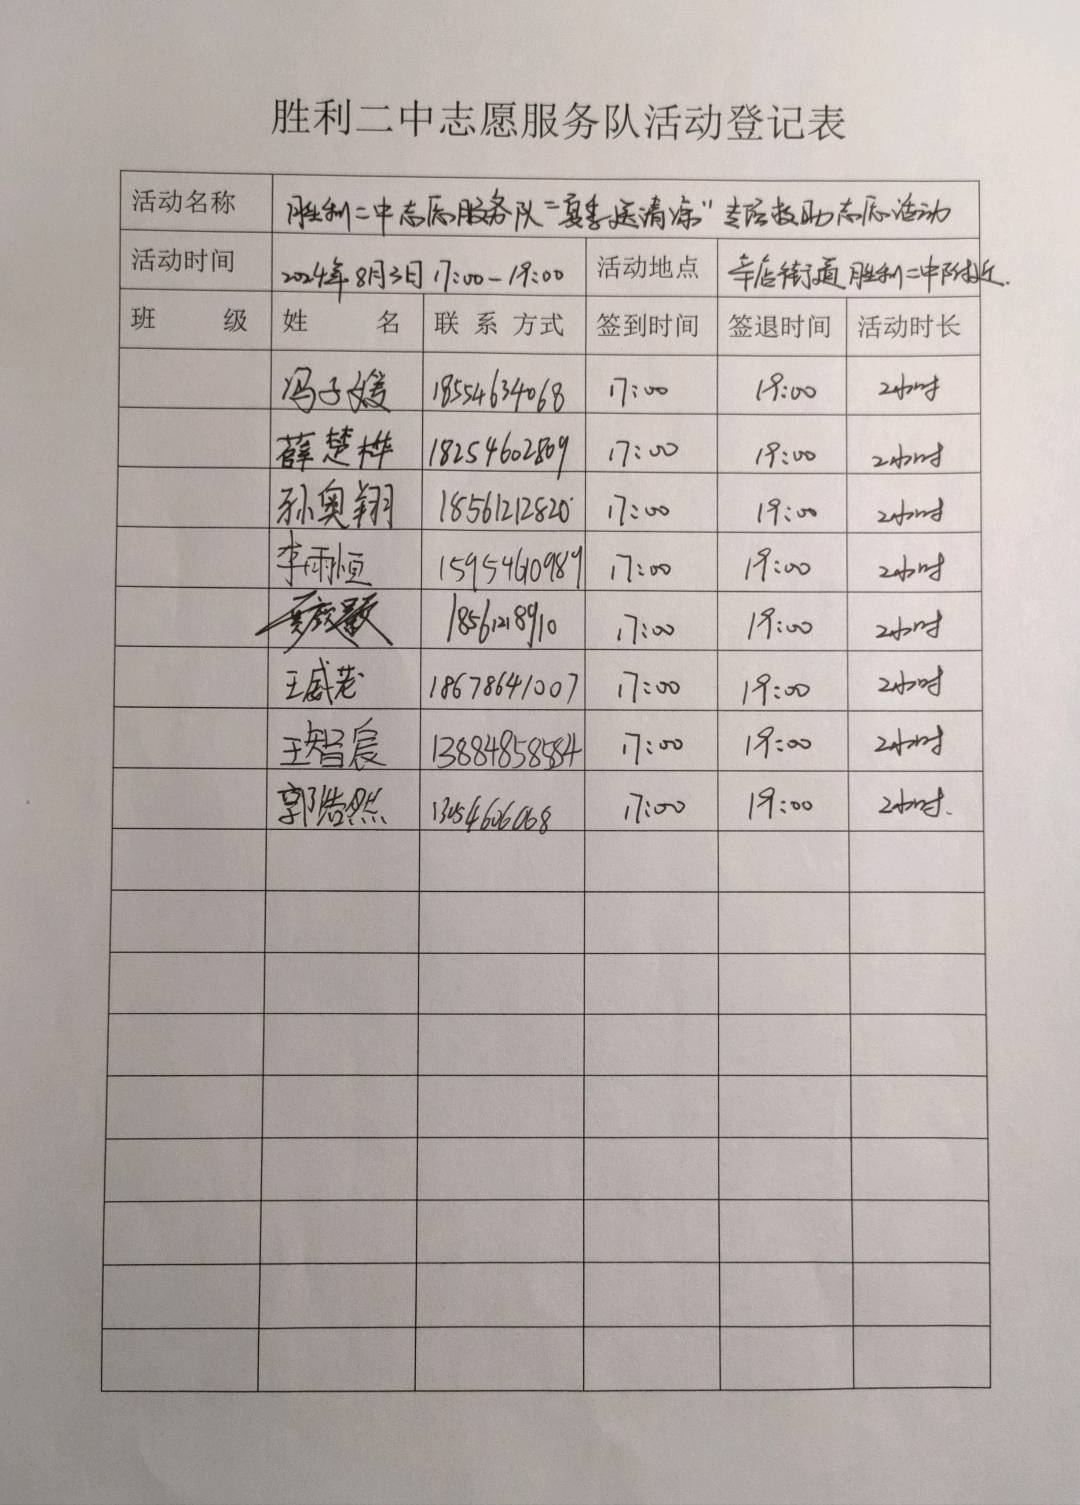 胜利二中志愿服务队活动登记表
活动名称 胜利二中志愿服务队“夏季送清凉”专段救助志愿活动
活动时间 2024年8月3日 17:00-19:00 活动地点 辛店街道胜利二中附近.
班 级 姓 名 联系方式 签到时间 签退时间 活动时长
冯子媛 18554634068 17:00 19:00 2小时
薛楚桦 18254602809 17:00 19:00 2小时
孙奥翔 18561212820 17:00 19:00 2小时
李雨恒 15954610989 17:00 19:00 2小时
18561218910 17:00 19:00 2小时
王威茏 18678641007 17:00 19:00 2小时
王智宸 13884858584 17:00 19:00 2小时
郭浩然 13054606068 17:00 19:00 2小时.